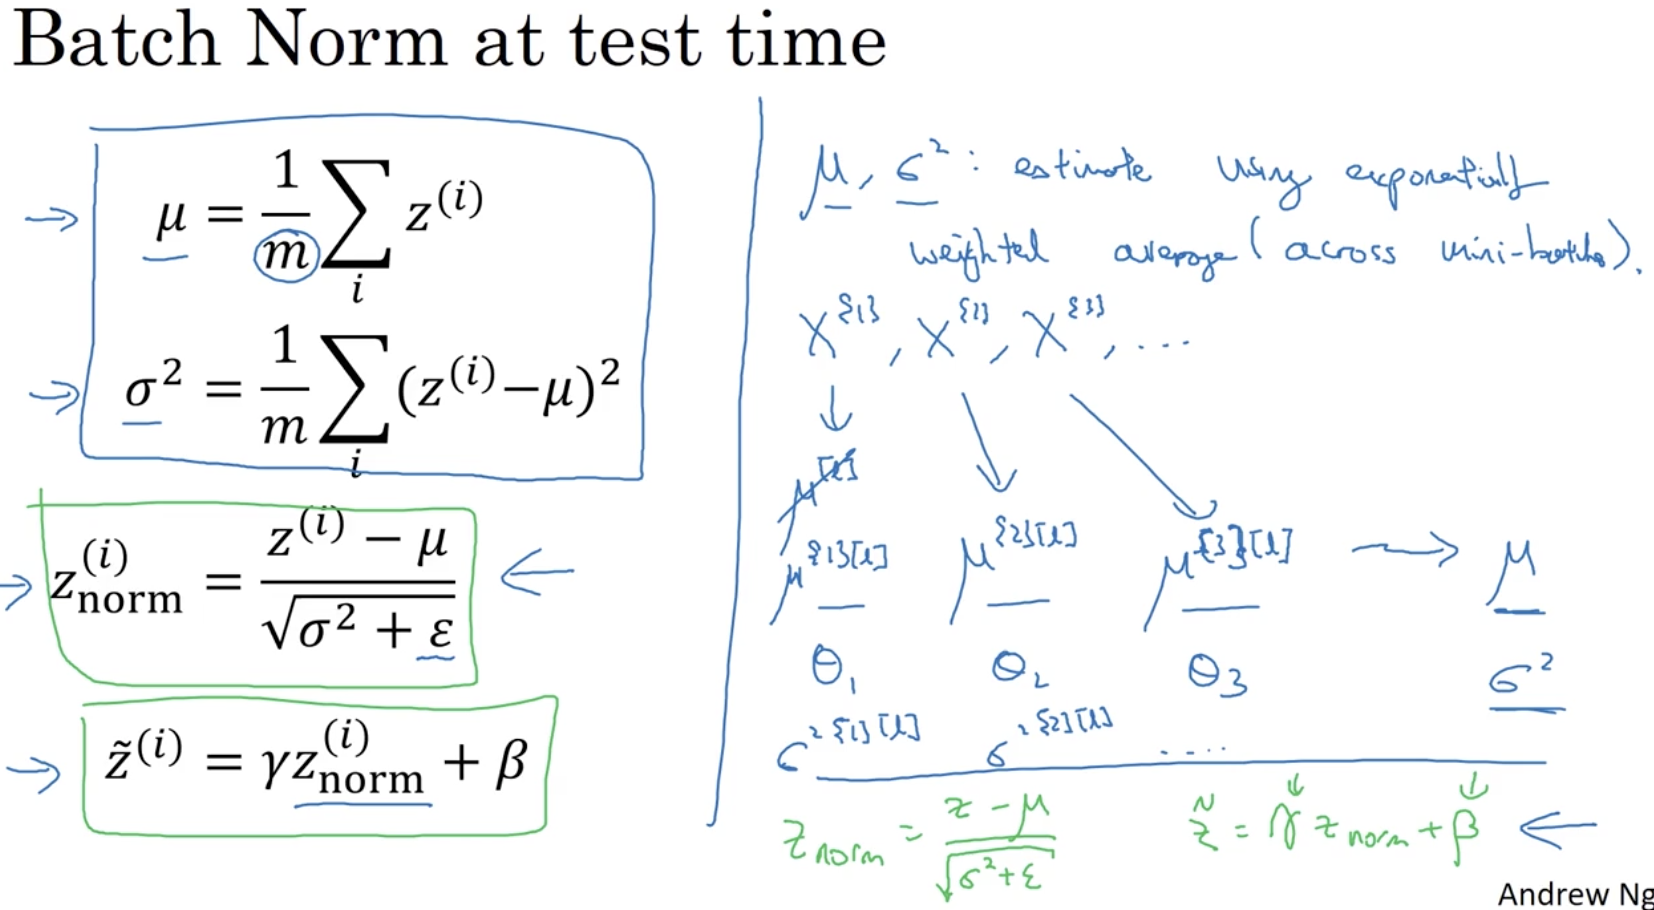 Batch Norm at test time
μ = 1/m ∑_i z^(i)
σ² = 1/m ∑_i (z^(i) − μ)²
z_norm^(i) = (z^(i) − μ) / √(σ² + ε)
z̃^(i) = γ z_norm^(i) + β
μ, σ² : estimate using exponentially
weighted average (across mini-batches).
X^{1}, X^{2}, X^{3}, ...
μ^[l]
μ^{1}[l] μ^{2}[l] μ^{3}[l] → μ
θ₁ θ₂ θ₃ σ²
σ²^{1}[l] σ²^{2}[l] ....
z_norm = (z − μ) / √(σ² + ε) z̃ = γ z_norm + β
Andrew Ng